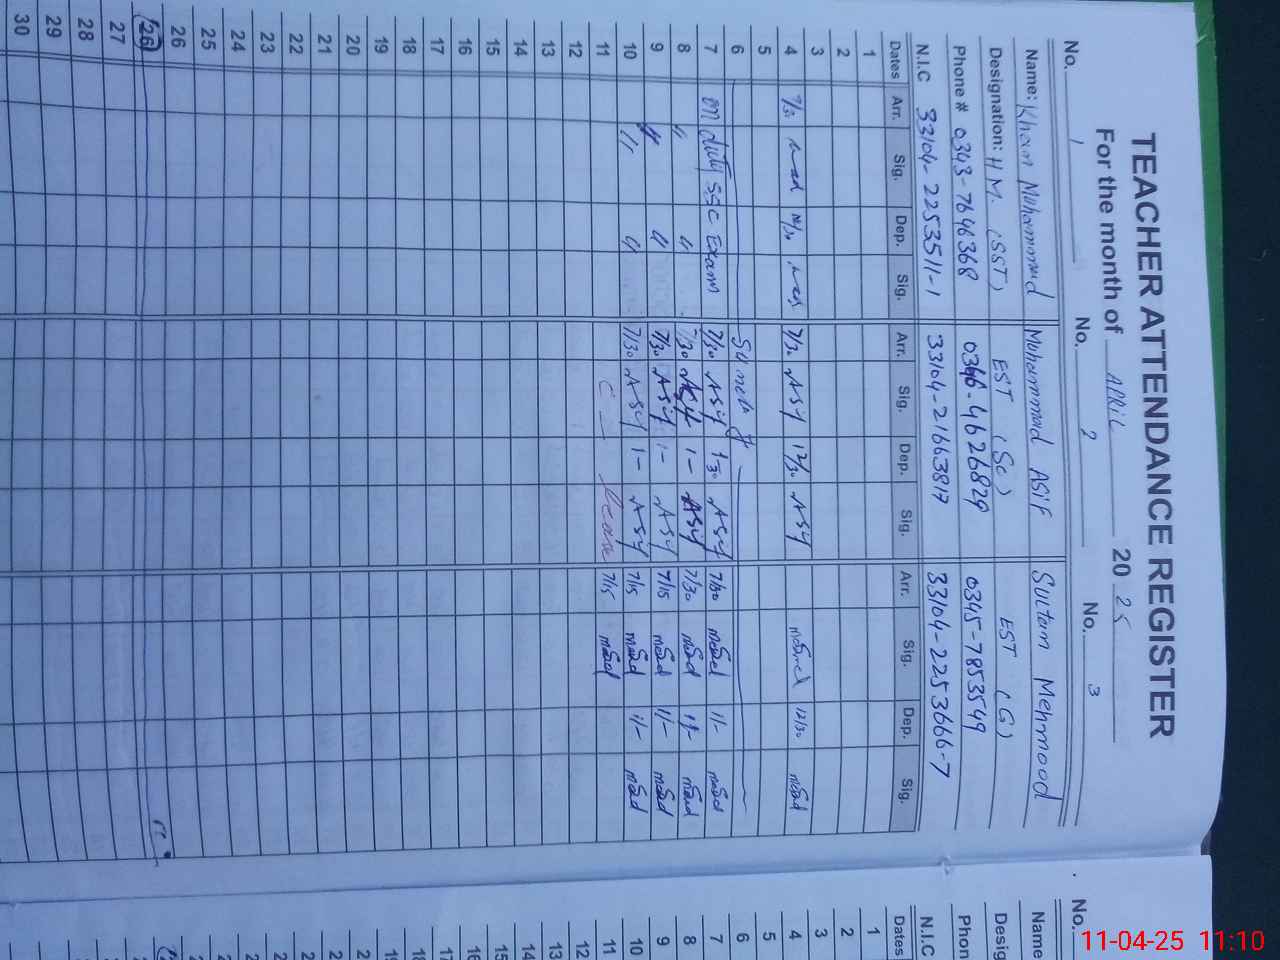 TEACHER ATTENDANCE REGISTER
For the month of APRIL 2025
No. 1 No. 2 No. 3
Name: Khan Muhammad Muhammad ASIF Sultan Mehmood
Designation: HM. (SST) EST (Sc) EST (G)
Phone # 0343-7646368 0346-4626829 0345-7853549
N.I.C 33104-2253511-1 33104-21663817 33104-2253666-7
Dates Arr. Sig. Dep. Sig. Arr. Sig. Dep. Sig. Arr. Sig. Dep. Sig.
1
2
3
4 7/30 12/30 7/30 Asif 12/30 Asif 12/30
5
6 Sunday
7 on duty SSC Exam 7/30 Asif 1/30 Asif 7/30 1/-
8 " " 7/30 Asif 1- Asif 7/30 1/-
9 " " 7/30 Asif 1- Asif 7/15 1/-
10 " " 7/30 Asif 1- Asif 7/15 1/-
11 C - leave 7/15
12
13
14
15
16
17
18
19
20
21
22
23
24
25
26
26
27
28
29
30
No.
Name
Desig
Phon
N.I.C
Dates
1
2
3
4
5
6
7
8
9
10
11
12
13
14
15
11-04-25 11:10